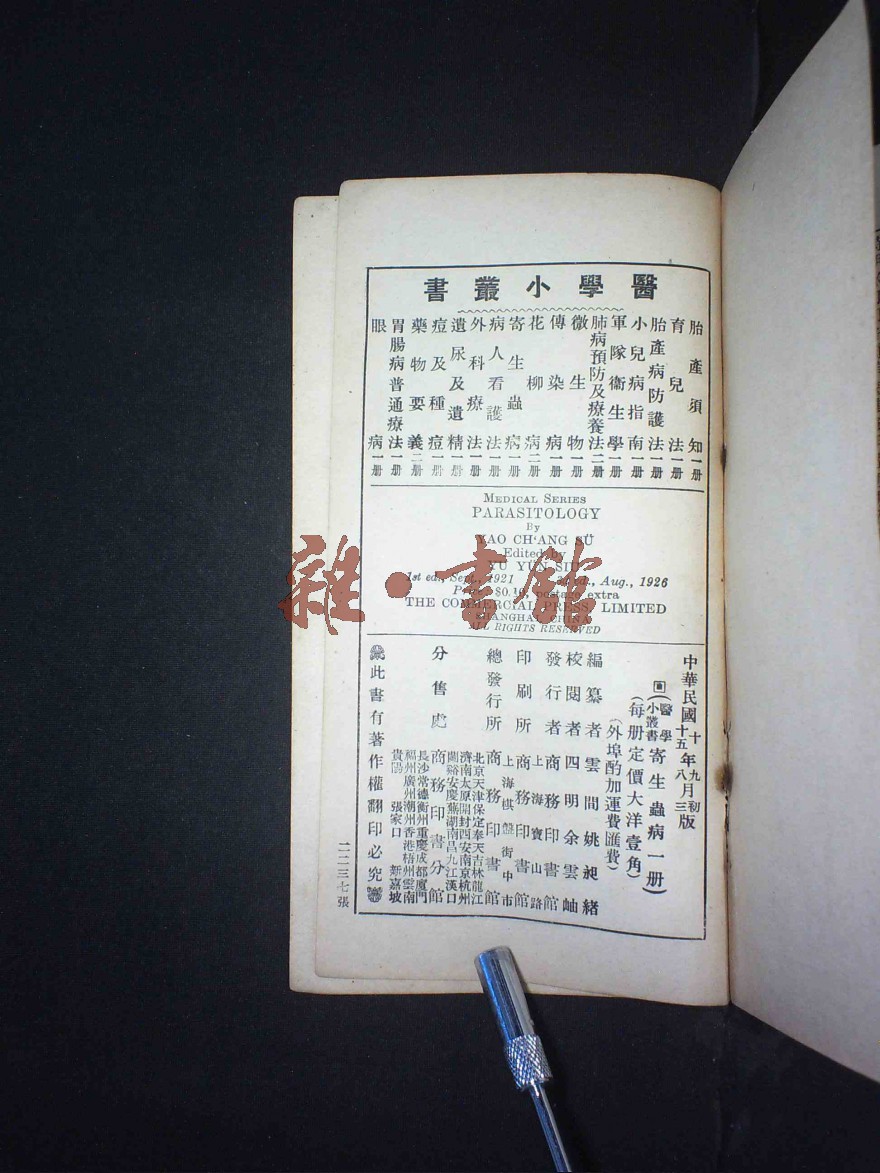 醫學小叢書
胎產須知一册
育兒法一册
胎產病防護法一册
小兒病指南一册
軍隊衞生學一册
肺病預防及療養法二册
微生物一册
傳染病一册
花柳病二册
寄生蟲病一册
病人看護法一册
外科療法一册
遺尿及遺精一册
痘及種痘一册
藥物要義二册
胃腸病普通療法一册
眼病一册
MEDICAL SERIES
PARASITOLOGY
By
YAO CH'ANG SÜ
Edited by
YÜ YÜN SIU
1st ed., Sept., 1921 ed., Aug., 1926
Price: $0.10, postage extra
THE COMMERCIAL PRESS, LIMITED
SHANGHAI, CHINA
ALL RIGHTS RESERVED
中華民國十年九月初版
十五年八月三版
(醫學小叢書寄生蟲病一册)
(每册定價大洋壹角)
(外埠酌加運費匯費)
編纂者 雲間姚昶緒
校閱者 四明余雲岫
發行者 商務印書館
印刷所 上海寶山路 商務印書館
總發行所 上海棋盤街中市 商務印書館
分售處 北京天津保定奉天吉林龍江
濟南太原開封西安南京杭州
蘭谿安慶蕪湖南昌九江漢口
商務印書分館
長沙常德衡州重慶成都廈門
福州廣州潮州香港梧州雲南
貴陽 張家口 新嘉坡
此書有著作權翻印必究
二二三七張
雜·書館